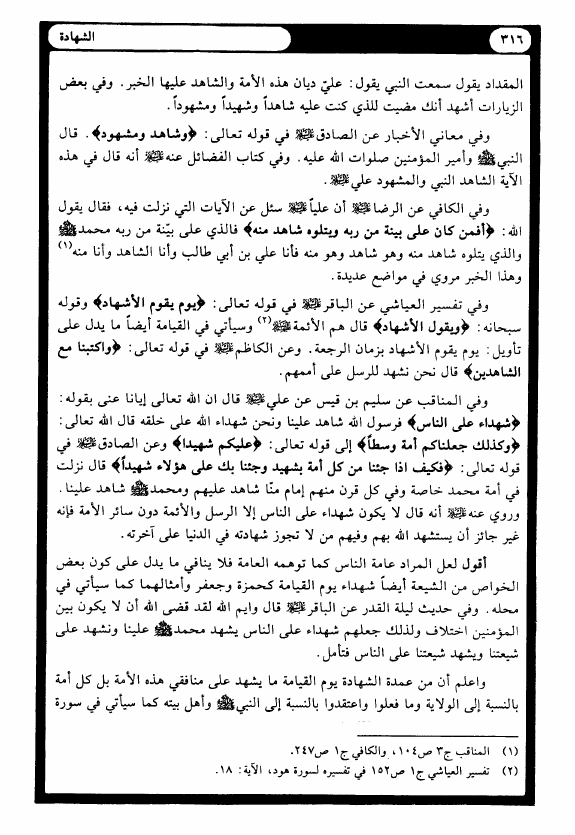 ٣١٦
الشهادة
المقداد يقول سمعت النبي يقول: عليّ ديان هذه الأمة والشاهد عليها الخبر. وفي بعض
الزيارات أشهد أنك مضيت للذي كنت عليه شاهداً وشهيداً ومشهوداً.
وفي معاني الأخبار عن الصادق في قوله تعالى: ﴿وشاهد ومشهود﴾. قال
النبي ﷺ وأمير المؤمنين صلوات الله عليه. وفي كتاب الفضائل عنه أنه قال في هذه
الآية الشاهد النبي والمشهود علي.
وفي الكافي عن الرضا أن علياً سئل عن الآيات التي نزلت فيه، فقال يقول
الله: ﴿أفمن كان على بينة من ربه ويتلوه شاهد منه﴾ فالذي على بيّنة من ربه محمد ﷺ
والذي يتلوه شاهد منه وهو شاهد وهو منه فأنا علي بن أبي طالب وأنا الشاهد وأنا منه(١)
وهذا الخبر مروي في مواضع عديدة.
وفي تفسير العياشي عن الباقر في قوله تعالى: ﴿يوم يقوم الأشهاد﴾ وقوله
سبحانه: ﴿ويقول الأشهاد﴾ قال هم الأئمة(٢) وسيأتي في القيامة أيضاً ما يدل على
تأويل: يوم يقوم الأشهاد بزمان الرجعة. وعن الكاظم في قوله تعالى: ﴿واكتبنا مع
الشاهدين﴾ قال نحن نشهد للرسل على أممهم.
وفي المناقب عن سليم بن قيس عن علي قال ان الله تعالى إيانا عنى بقوله:
﴿شهداء على الناس﴾ فرسول الله شاهد علينا ونحن شهداء الله على خلقه قال الله تعالى:
﴿وكذلك جعلناكم أمة وسطاً﴾ إلى قوله تعالى: ﴿عليكم شهيدا﴾ وعن الصادق في
قوله تعالى: ﴿فكيف اذا جئنا من كل أمة بشهيد وجئنا بك على هؤلاء شهيداً﴾ قال نزلت
في أمة محمد خاصة وفي كل قرن منهم إمام منّا شاهد عليهم ومحمد ﷺ شاهد علينا.
وروي عنه أنه قال لا يكون شهداء على الناس إلا الرسل والأئمة دون سائر الأمة فإنه
غير جائز أن يستشهد الله بهم وفيهم من لا تجوز شهادته في الدنيا على آخرته.
أقول لعل المراد عامة الناس كما توهمه العامة فلا ينافي ما يدل على كون بعض
الخواص من الشيعة أيضاً شهداء يوم القيامة كحمزة وجعفر وأمثالهما كما سيأتي في
محله. وفي حديث ليلة القدر عن الباقر قال وايم الله لقد قضى الله أن لا يكون بين
المؤمنين اختلاف ولذلك جعلهم شهداء على الناس يشهد محمد ﷺ علينا ونشهد على
شيعتنا ويشهد شيعتنا على الناس فتأمل.
واعلم أن من عمدة الشهادة يوم القيامة ما يشهد على منافقي هذه الأمة بل كل أمة
بالنسبة إلى الولاية وما فعلوا واعتقدوا بالنسبة إلى النبي ﷺ وأهل بيته كما سيأتي في سورة
(١) المناقب ج٣ ص١٠٤، والكافي ج١ ص٢٤٧.
(٢) تفسير العياشي ج١ ص١٥٢ في تفسيره لسورة هود، الآية: ١٨.